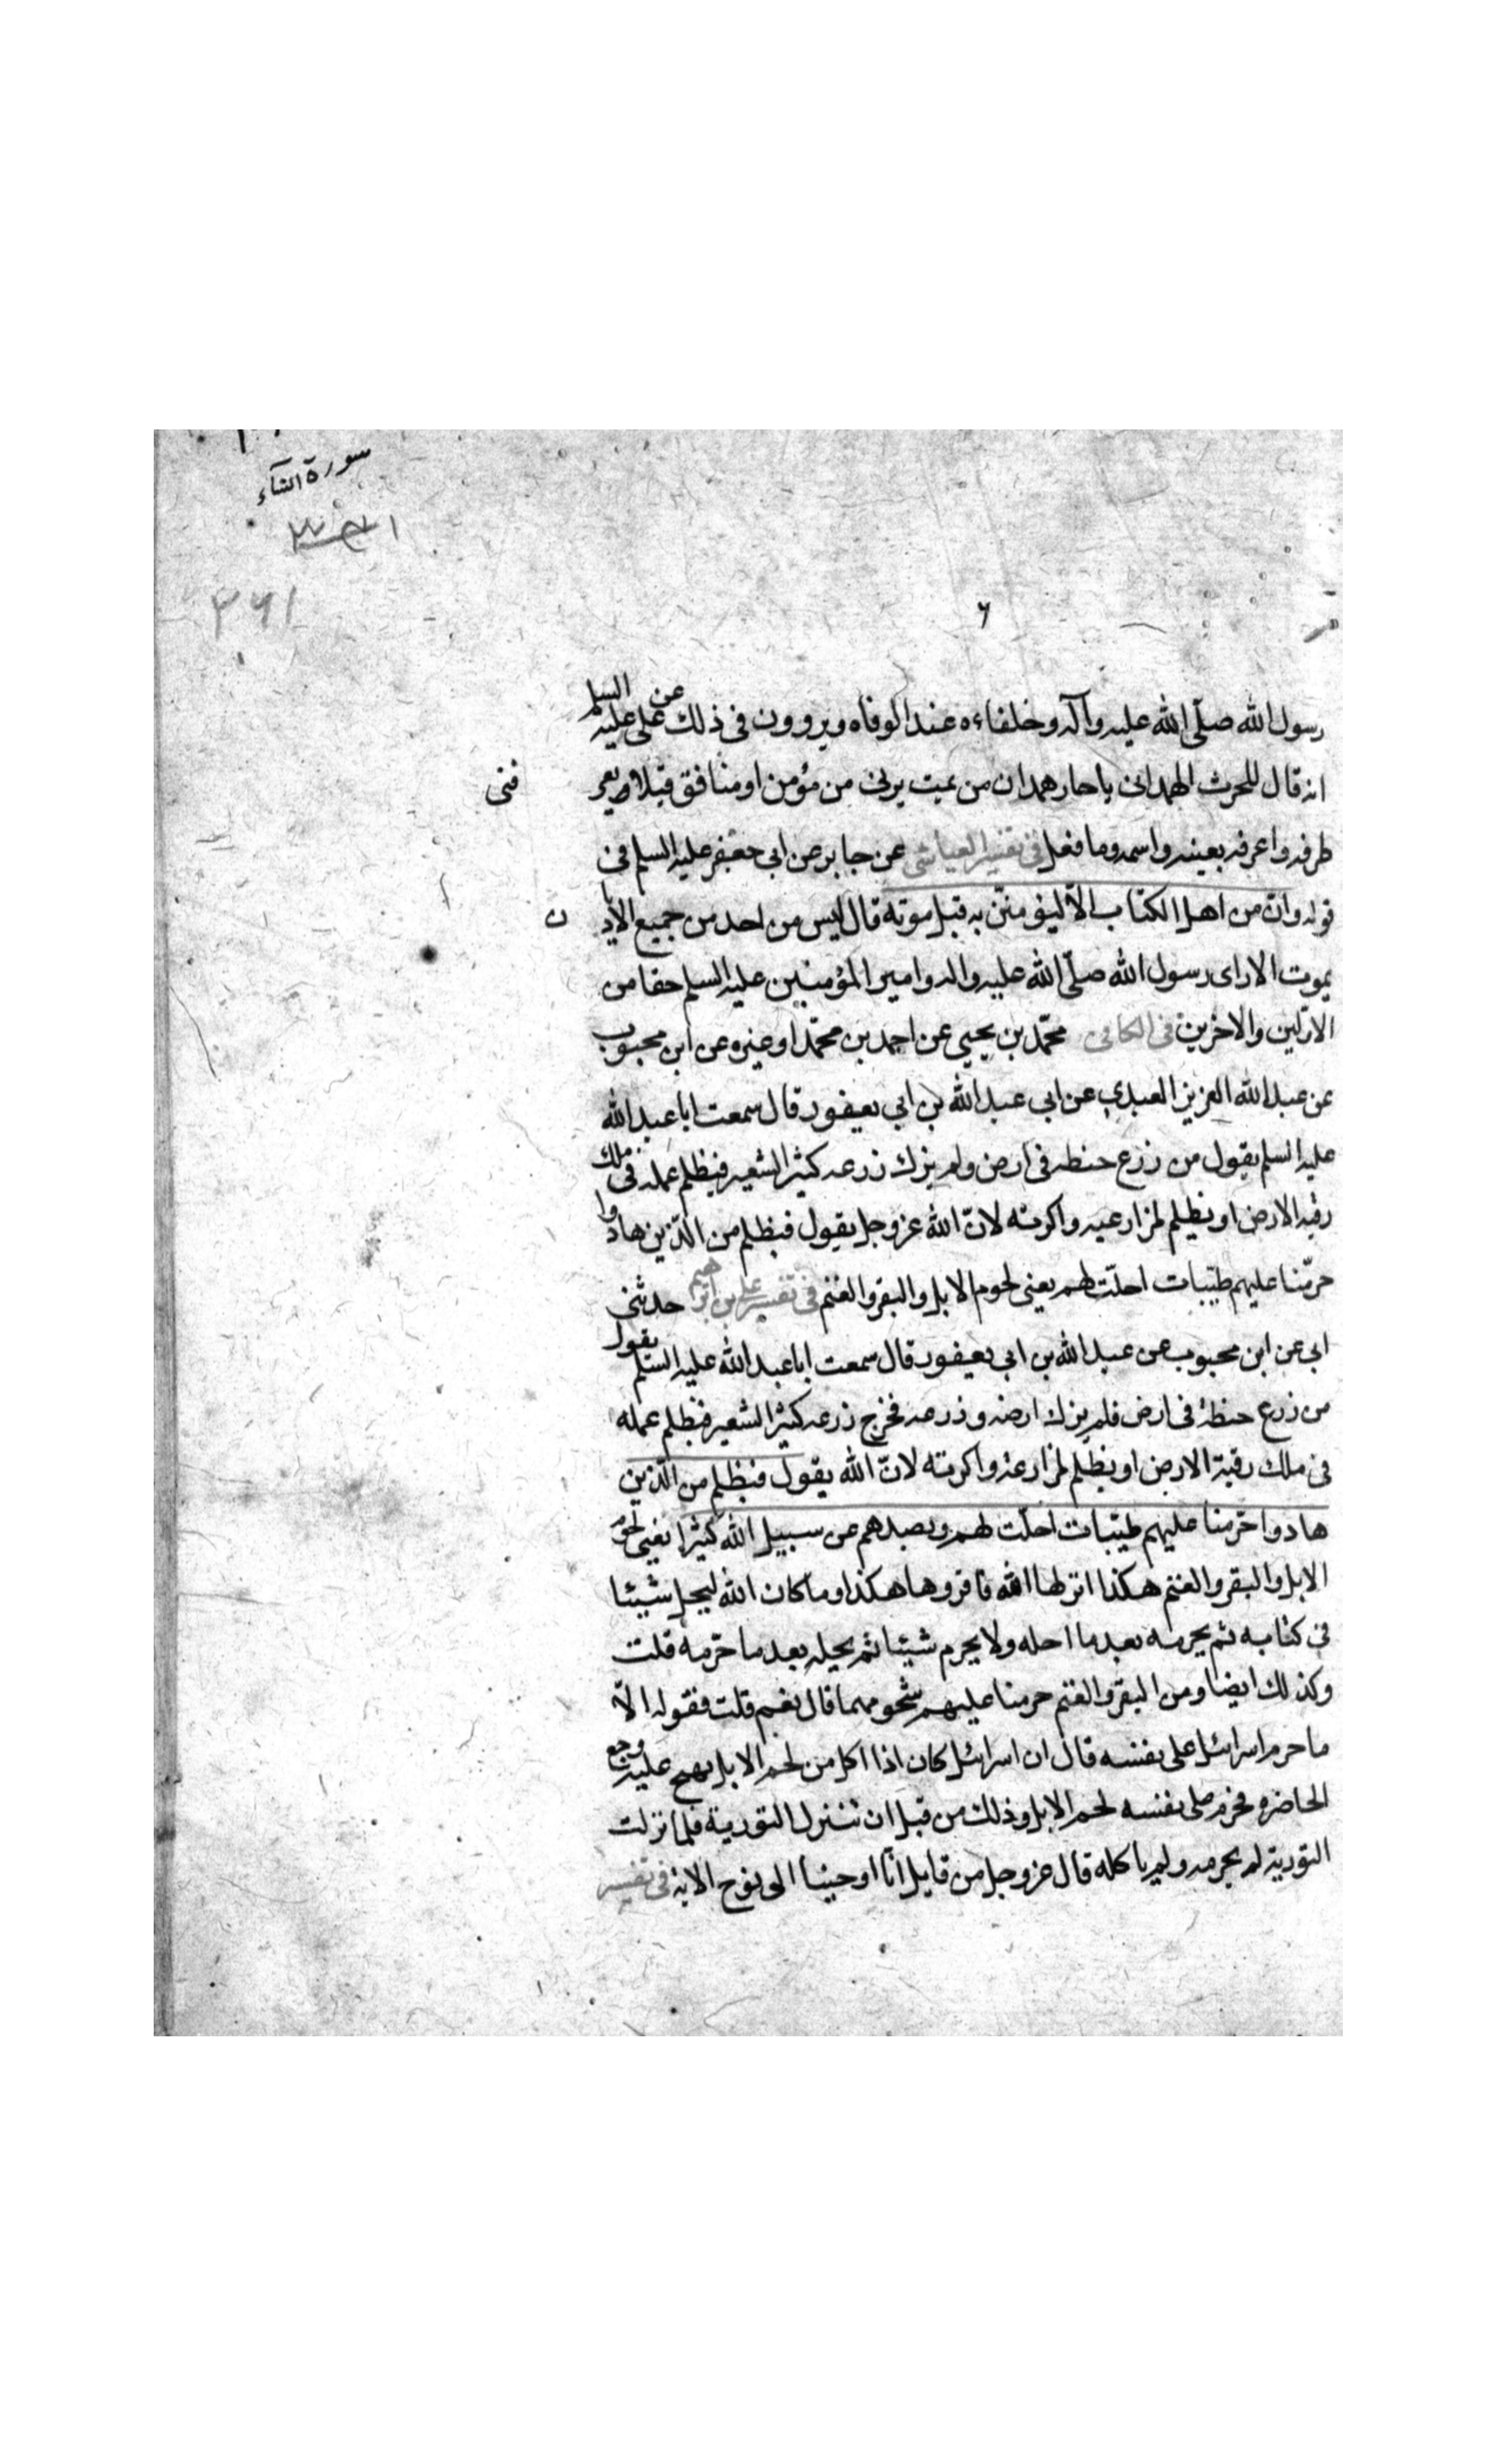 سورة النساء
٣٦١
رسول الله صلّى الله عليه وآله وخلفاءه عند الوفاه ويروون فى ذلك عن على عليه السلم
انه قال للحرث الهمدانى ياحار همدان من يمت يرنى من مؤمن او منافق قبلا و يعر
فنى
طرفه واعرفه بعينه واسمه وما فعل فى تفسير العياشى عن جابر عن ابى جعفر عليه السلم فى
قوله وان من اهل الكتاب الّا ليؤمننّ به قبل موته قال ليس من احد من جميع الاديا
ن
يموت الا راى رسول الله صلّى الله عليه واله وامير المؤمنين عليه السلم حقا من
الاوّلين والاخرين فى الكافى محمّد بن يحيى عن احمد بن محمّد او غيره عن ابن محبوب
عن عبد الله العزيز العبدى عن ابى عبد الله بن ابى يعفور قال سمعت ابا عبد الله
عليه السلم يقول من زرع حنطه فى ارض ولم يزك زرعه كثير الشعير فبظلم عمله فى ملك
رقبه الارض او بظلم لمزارعيه واكرته لانّ الله عز وجل يقول فبظلم من الّذين هادوا
حرّمنا عليهم طيّبات احلّت لهم يعنى لحوم الابل والبقر والغنم فى تفسير على بن ابرهيم حدثنى
ابى عن ابن محبوب عن عبد الله بن ابى يعفور قال سمعت ابا عبد الله عليه السّلم يقول
من زرع حنطة فى ارض فلم يزك ارضه وزرعه فخرج زرعه كثير الشعير فبظلم عمله
فى ملك رقبة الارض او بظلم لمزارعه واكرته لانّ الله يقول فبظلم من الّذين
هادوا حرّمنا عليهم طيّبات احلّت لهم وبصدهم عن سبيل الله كثيرا يعنى لحوم
الابل والبقر والغنم هكذا انزلها الله فاقروها هكذا وما كان الله ليحل شيئا
فى كتابه ثم يحرمه بعد ما احله ولا يحرم شيئا ثم يحله بعد ما حرّمه قلت
وكذلك ايضا ومن البقر والغنم حرمنا عليهم شحومهما قال نعم قلت فقوله الّا
ما حرم اسرائيل على نفسه قال ان اسرائيل كان اذا اكل من لحم الابل يهيج عليه وجع
الخاصره فحرم على نفسه لحم الابل وذلك من قبل ان تنزل التورية فلما نزلت
التورية لم يحرمه ولم ياكله قال عز وجل من قايل انّا اوحينا الى نوح الاية فى تفسير